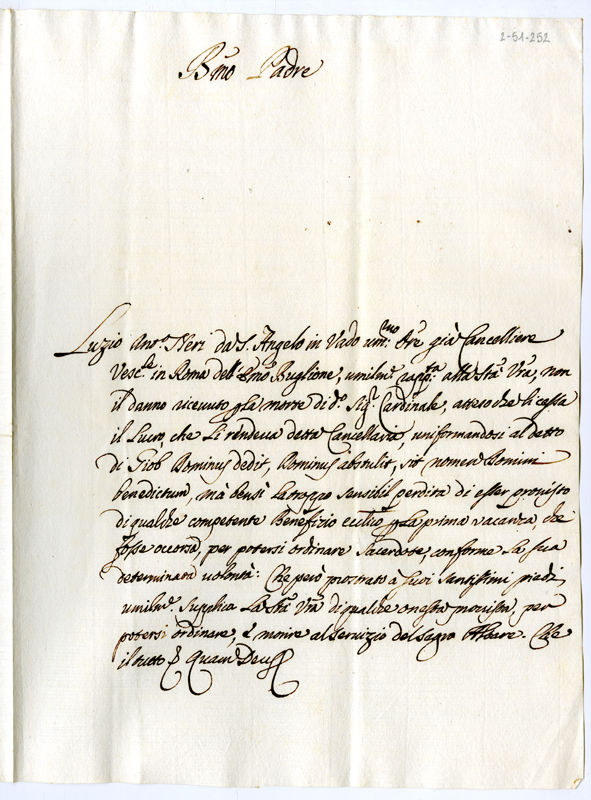 2-51-252
Bmo Padre
Luzio Anto. Neri da S. Angelo in Vado um:mo Ore già Cancelliere
Vesc.le in Roma dell' Emo Buglione, umilme. rapp.ta alla Stà Vra, non
il danno ricevuto p la morte di do. Sigr. Cardinale, atteso che li cessa
il Lucro, che Li rendeva detta Cancellaria, uniformandosi al detto
di Giob Dominus dedit, Dominus abstulit, sit nomen Domini
benedictum, mà bensì la troppo sensibil perdita di esser provisto
di qualche competente Benefizio eccltico p la prima vacanza che
fosse occorsa, per potersi ordinare sacerdote, conforme la sua
determinata volontà: Che però prostrato à suoi Santissimi piedi
umilme. supplica La Stà Vra di qualche onesta provista, per
potersi ordinare, è morire al servizio del sagro Altare. Che
il tutto &c Quam Deus &c